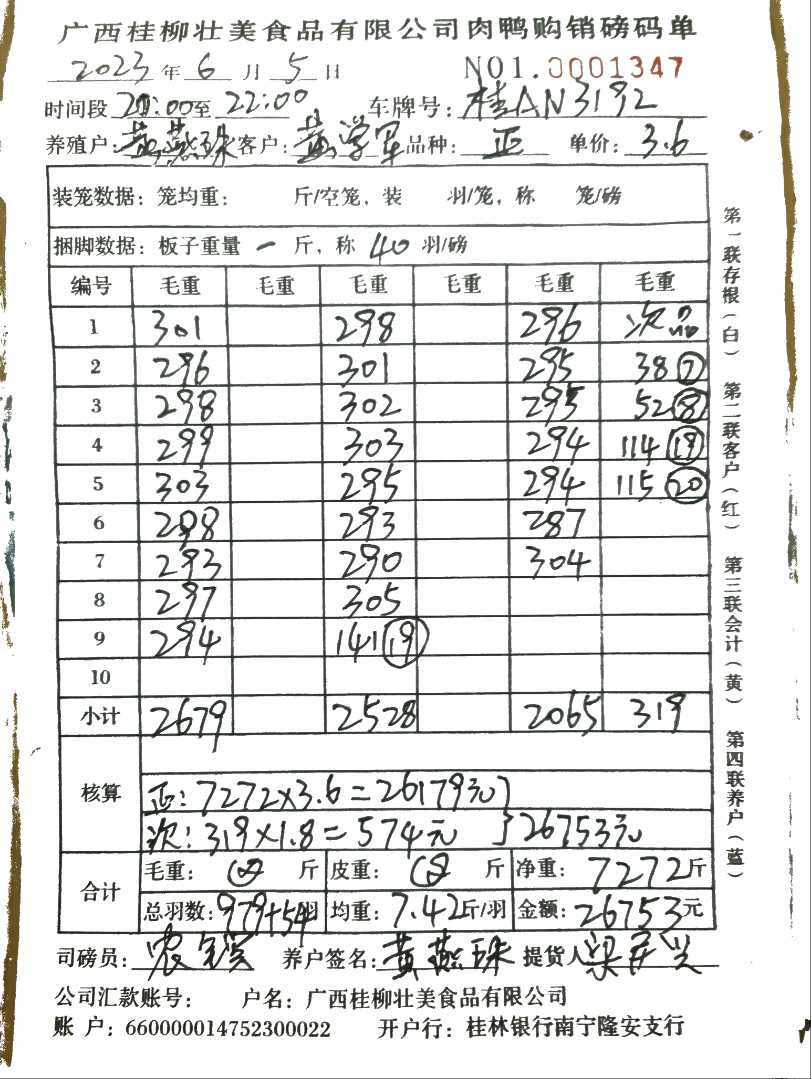 广西桂柳壮美食品有限公司肉鸭购销磅码单
2023年6月5日 NO1.0001347
时间段 20:00至22:00 车牌号:桂AN3192
养殖户:黄燕珠 客户:黄学军 品种:正 单价:3.6
装笼数据:笼均重: 斤/空笼,装 羽/笼,称 笼/磅
捆脚数据:板子重量 一 斤,称 40 羽/磅
编号 毛重 毛重 毛重 毛重 毛重 毛重
1 301 298 296 次品
2 296 301 295 38⑦
3 298 302 295 52⑧
4 299 303 294 114⑲
5 303 295 294 115⑳
6 298 293 287
7 293 290 304
8 297 305
9 294 141⑲
10
小计 2679 2528 2065 319
核算
正:7272×3.6=26179元}
次:319×1.8=574元 }26753元
合计
毛重: 斤 皮重: 斤 净重:7272斤
总羽数:979+54羽 均重:7.42斤/羽 金额:26753元
司磅员:农 养户签名:黄燕珠 提货人梁
公司汇款账号: 户名:广西桂柳壮美食品有限公司
账 户:660000014752300022 开户行:桂林银行南宁隆安支行
第一联存根(白) 第二联客户(红) 第三联会计(黄) 第四联养户(蓝)